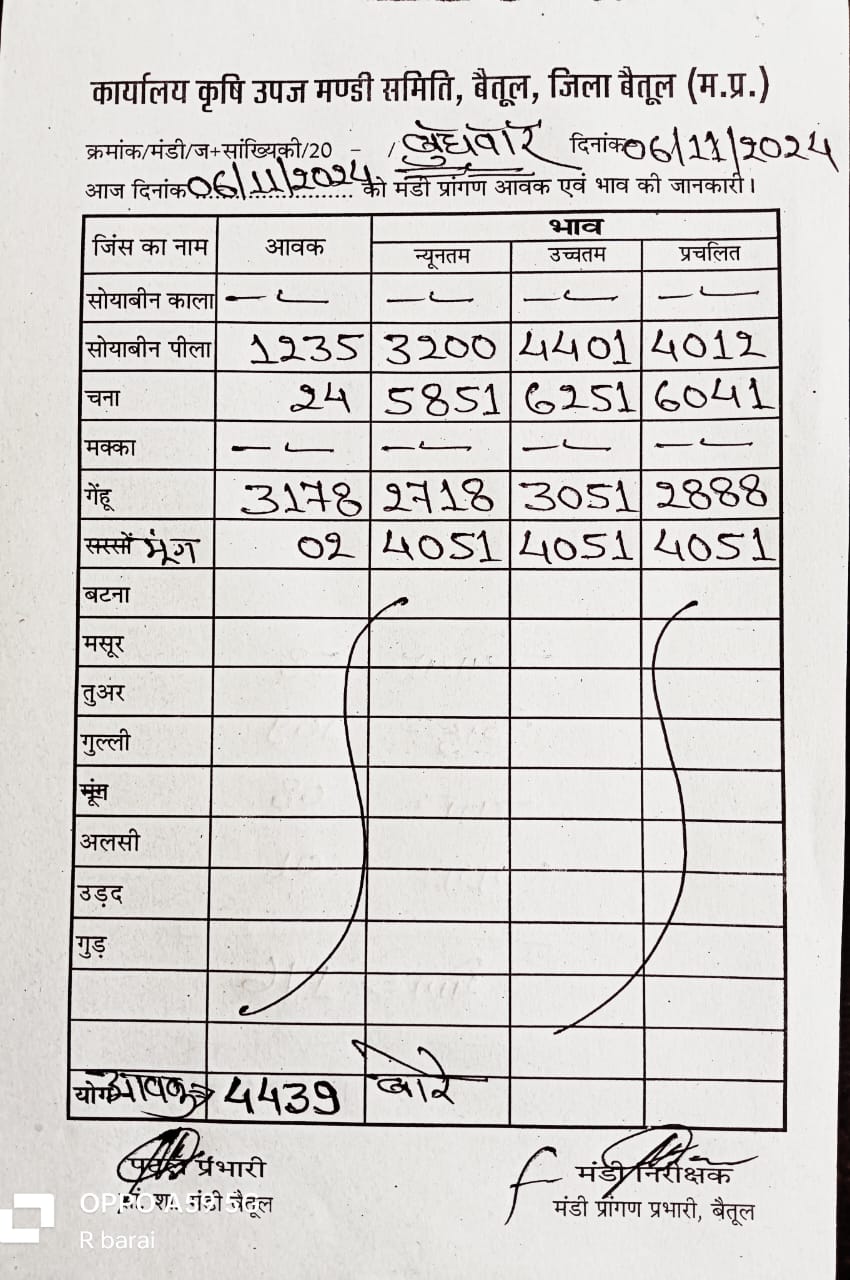 कार्यालय कृषि उपज मण्डी समिति, बैतूल, जिला बैतूल (म.प्र.)
क्रमांक/मंडी/ज+सांख्यिकी/20 - / बुधवार दिनांक 06/11/2024
आज दिनांक 06/11/2024 को मंडी प्रांगण आवक एवं भाव की जानकारी।
जिंस का नाम आवक भाव
न्यूनतम उच्चतम प्रचलित
सोयाबीन काला
सोयाबीन पीला 1235 3200 4401 4012
चना 24 5851 6251 6041
मक्का
गेंहू 3178 2718 3051 2888
सरसों मूंग 02 4051 4051 4051
बटना
मसूर
तुअर
गुल्ली
मूंग
अलसी
उड़द
गुड़
योग आवक 4439 बोरे
प्रभारी मंडी निरीक्षक
मंडी बैतूल मंडी प्रांगण प्रभारी, बैतूल
OPPO A53s 5G
R barai